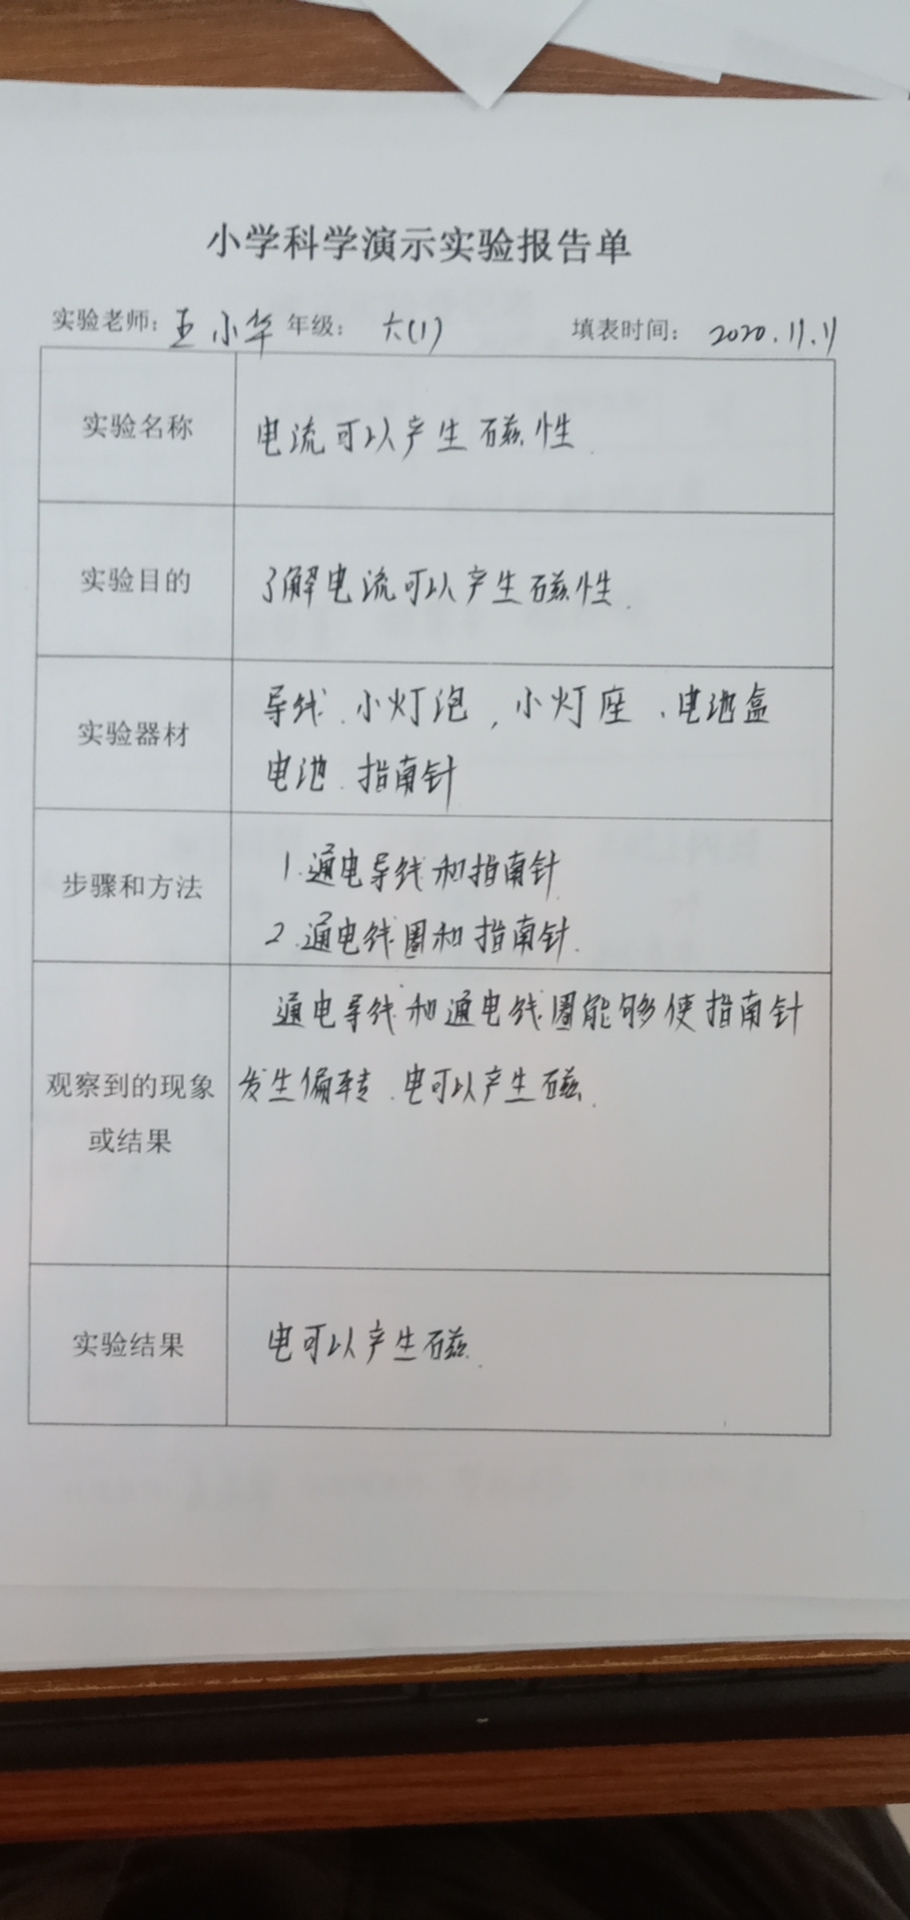 小学科学演示实验报告单
实验老师：王小华 年级：六(1) 填表时间：2020.11.11
实验名称 电流可以产生磁性.
实验目的 了解电流可以产生磁性.
实验器材 导线、小灯泡，小灯座、电池盒
电池、指南针
步骤和方法 1.通电导线和指南针
2.通电线圈和指南针.
通电导线和通电线圈能够使指南针
观察到的现象 发生偏转.电可以产生磁.
或结果
实验结果 电可以产生磁.